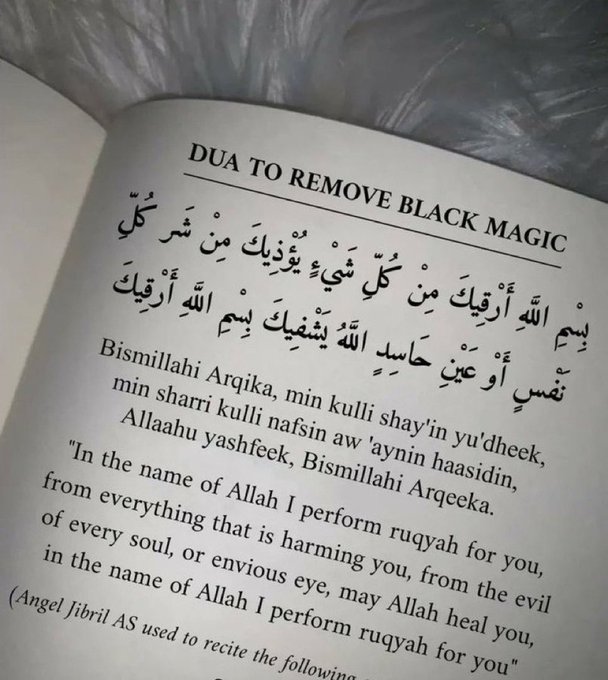 DUA TO REMOVE BLACK MAGIC
بِسْمِ اللَّهِ أَرْقِيكَ مِنْ كُلِّ شَيْءٍ يُؤْذِيكَ مِنْ شَر كُلِّ
نَفْسٍ أَوْ عَيْنِ حَاسِدٍ اللَّهُ يَشْفِيكَ بِسْمِ اللَّهِ أَرْقِيكَ
Bismillahi Arqika, min kulli shay'in yu'dheek,
min sharri kulli nafsin aw 'aynin haasidin,
Allaahu yashfeek, Bismillahi Arqeeka.
"In the name of Allah I perform ruqyah for you,
from everything that is harming you, from the evil
of every soul, or envious eye, may Allah heal you,
in the name of Allah I perform ruqyah for you"
(Angel Jibril AS used to recite the following